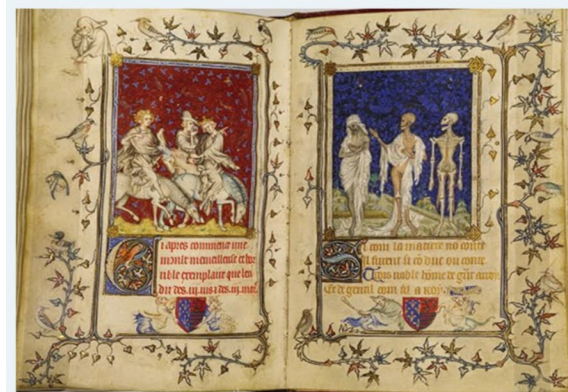 Ci apres commence une
moult merueilleuse et hor
rible exemplaire que len
dit des .iij. uis et des .iij. mor
Si com la matiere no conte
Il furent si cō duc ou conte
Trois noble home de
Et de gentil com fil a roy